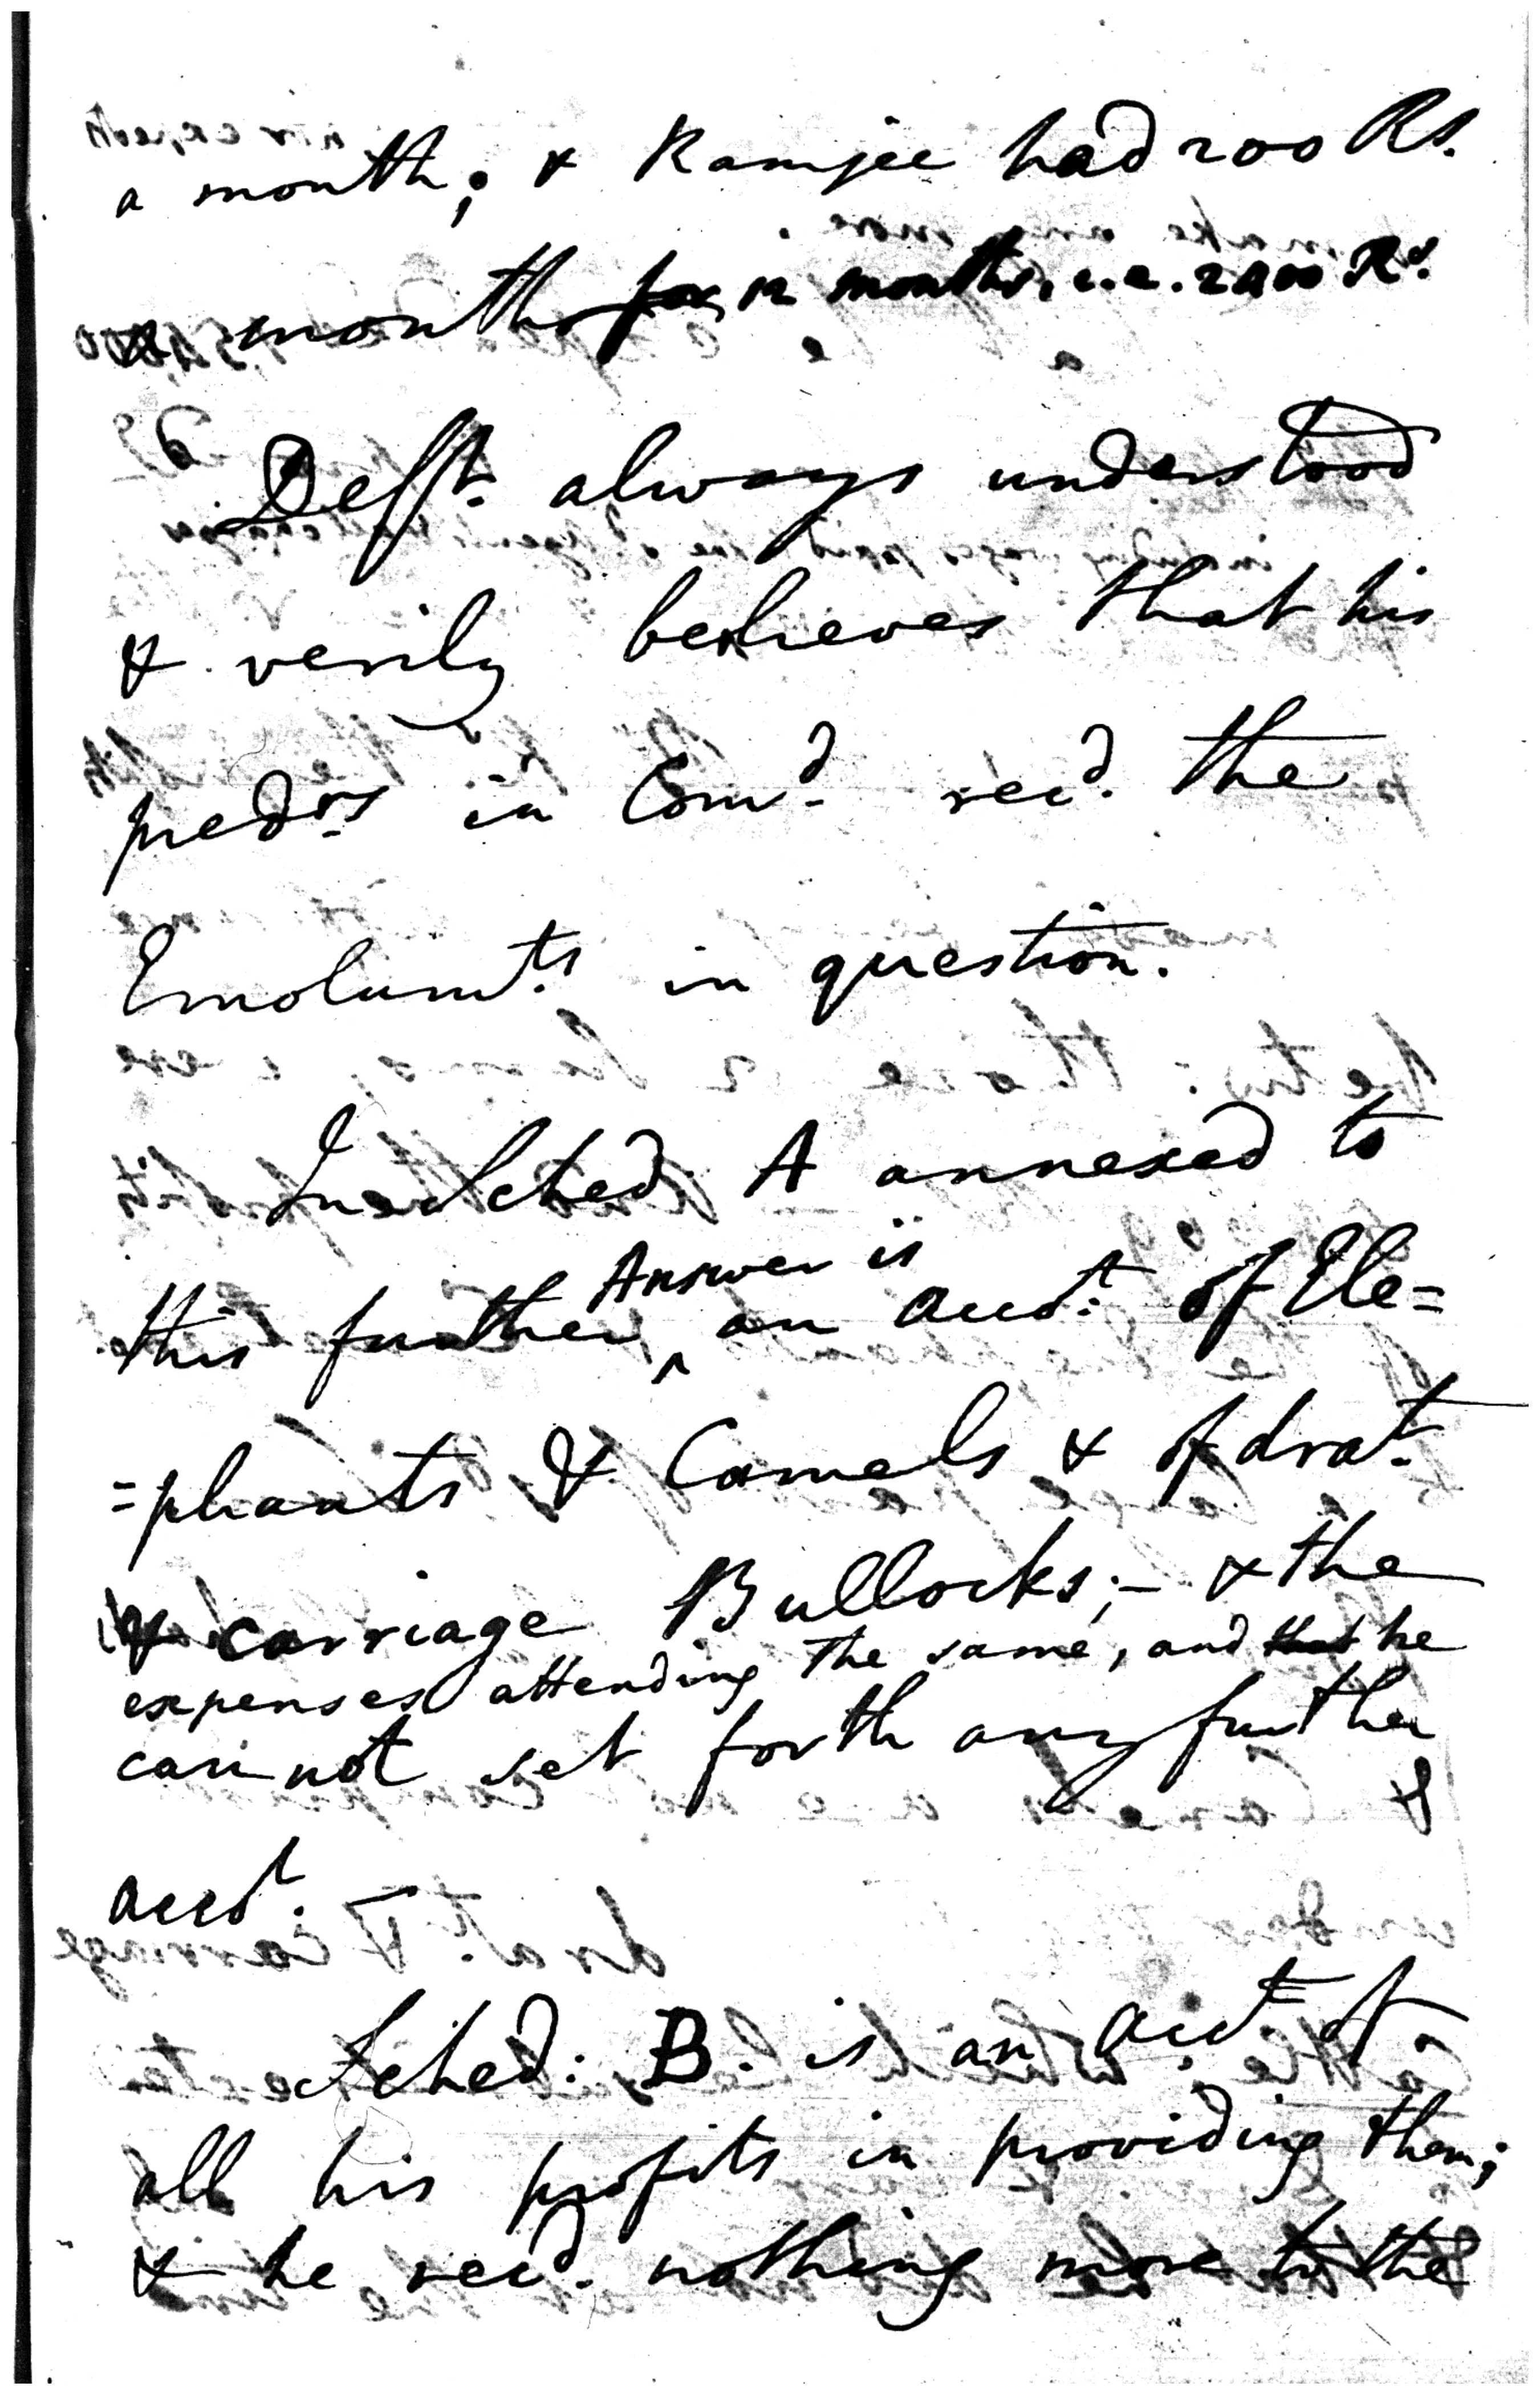 a month; & Ramjee had 200 Rs.
a month for 12 months, i.e. 2400 Rs.
Deft. always understood
& verily believes that his
predrs in Comd. recd. the
Emolumts. in question.
In Sched: A annexed to
this further Answer is an acct: of Ele=
=phants & Camels & of drat.
& carriage Bullocks;– & the
expenses attending the same, and that he
cannot set forth any further
acct.
Sched: B. is an acct. of
all his profits in providing them;
& he recd. nothing more to the